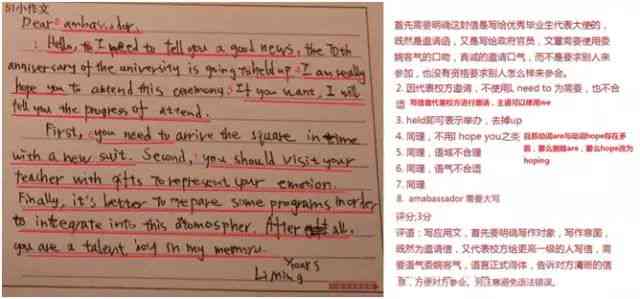 51小作文
Dear ambassdor,
Hello, I need to tell you a good news, the 70th
anniversary of the university is going to held up. I am really
hope you to attend this ceremony. If you want, I will
tell you the progress of attend.
First, you need to arrive the square in time
with a new suit. Second, you should visit your
teacher with gifts to represent your emotion.
Finally, it's better to prepare some programs in order
to integrate into this atomospher. After all,
you are a talent boy in my memory.
Yours
Li ming
首先需要明确这封信是写给优秀毕业生代表大使的，
既然是邀请函，又是写给政府官员，文章需要使用委
婉客气的口吻，真诚的邀请口气，而不是要求别人来
参加，也没有资格要求别人怎么样来参会。
2. 因代表校方邀请，不使用I, need to 为需要，也不合
适 写信者代表校方进行邀请，主语可以使用we
3. held即可表示举办，去掉up
4. 同理，不用I hope you之类
5. 同理，语域不合理
6. 同理，语气不合适
7. 同理
8. amabassador 需要大写
评分:3分
评语：写应用文，首先要明确写作对象，写作意图，
既然为邀请信，又代表校方给更高一级的人写信，需
要语气委婉客气，语言正式得体，告诉对方清晰的信
息，方便对方参会。